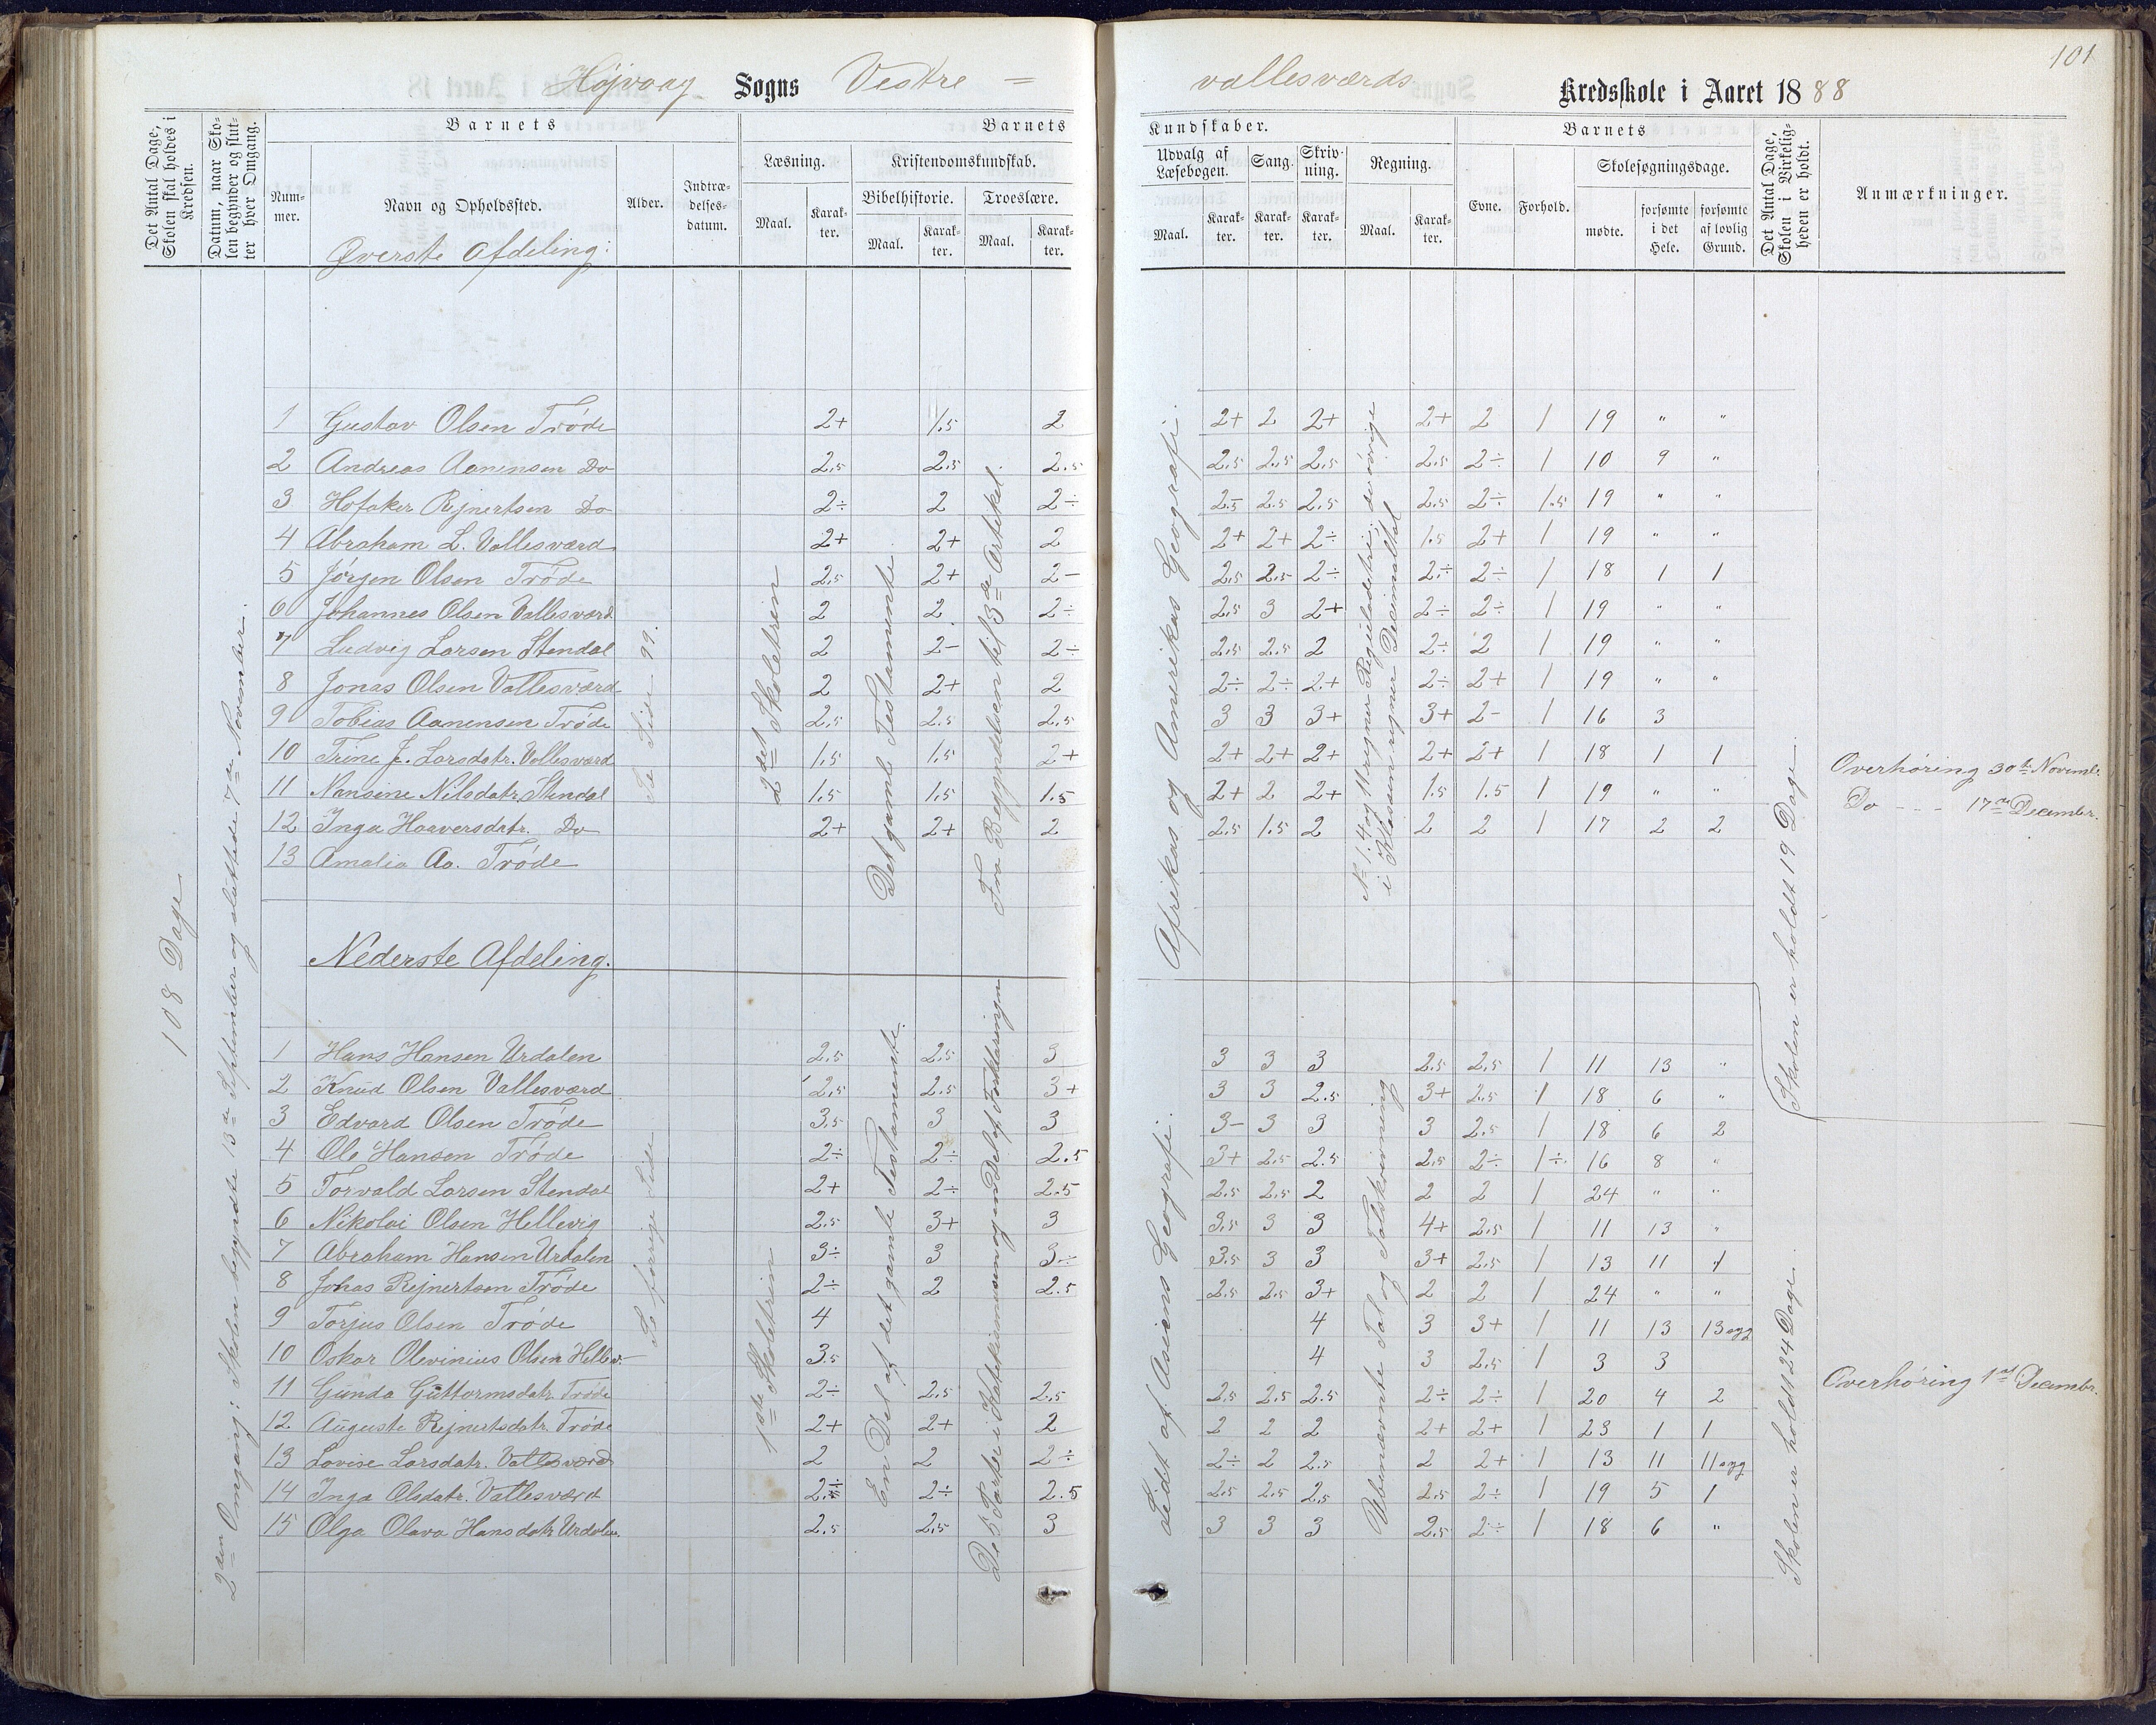 101
Højvaag Sogns Vestre = vallesværds Kredsskole i Aaret 1888
Det Antal Dage, Skolen skal holdes i Kredsen.
Datum, naar Skolen begynder og slutter hver Omgang.
Barnets
Nummer.
Navn og Opholdssted.
Alder.
Indtrædelsesdatum.
Barnets Kundskaber.
Læsning.
Maal.
Karakter.
Kristendomskundskab.
Bibelhistorie.
Maal.
Karakter.
Troeslære.
Maal.
Karakter.
Udvalg af Læsebogen.
Maal.
Karakter.
Sang.
Karakter.
Skrivning.
Karakter.
Regning.
Maal.
Karakter.
Barnets
Evne.
Forhold.
Skolesøgningsdage.
mødte.
forsømte i det Hele.
forsømte af lovlig Grund.
Det Antal Dage, Skolen i Virkeligheden er holdt.
Anmærkninger.
108 Dage
2den Omgang: Skolen begyndte 13de September og sluttede 7de November.
Øverste Afdeling:
Se Side 99.
2det Skoletrin
Det gamle Testamente.
Fra Begyndelsen til 3de Artikel
Afrikas og Amerikas Geografi.
No 1. 4 og 11 regner Reguladetri; de øvrige
i Klassen regner Decimaltal
Skolen er holdt 19 Dage.
1 Gustav Olsen Trøde 2+ 1.5 2 2+ 2 2+ 2+ 2 1 19 " "
2 Andreas Aanensen Do 2.5 2.5 2.5 2.5 2.5 2.5 2.5 2÷ 1 10 9 "
3 Hofaker Rejnertsen Do 2÷ 2 2÷ 2.5 2.5 2.5 2.5 2÷ 1.5 19 " "
4 Abraham L. Vallesværd 2+ 2+ 2 2+ 2+ 2÷ 1.5 2+ 1 19 " "
5 Jørgen Olsen Trøde 2.5 2+ 2- 2.5 2.5 2÷ 2÷ 2÷ 1 18 1 1
6 Johannes Olsen Vallesværd 2 2 2÷ 2.5 3 2+ 2÷ 2÷ 1 19 " "
7 Ludvig Larsen Stendal 2 2- 2÷ 2.5 2.5 2 2÷ 2 1 19 " "
8 Jonas Olsen Vallesværd 2 2+ 2 2÷ 2÷ 2+ 2÷ 2+ 1 19 " "
9 Tobias Aanensen Trøde 2.5 2.5 2.5 3 3 3+ 3+ 2- 1 16 3
10 Trine J. Larsdatr. Vallesværd 1.5 1.5 2+ 2+ 2+ 2+ 2+ 2+ 1 18 1 1
11 Nansine Nilsdatr. Stendal 1.5 1.5 1.5 2+ 2 2+ 1.5 1.5 1 19 " "
12 Inga Haaversdatr. Do 2+ 2+ 2 2.5 1.5 2 2 2 1 17 2 2
13 Amalia Aa. Trøde
Overhøring 30te Novembr.
Do - - - 17de Decembr.
Nederste Afdeling.
Se forrige Side
1ste Skoletrin
En Del af det gamle Testamente.
De 5 Parter i Katekismusen og en Del af Forklaringen
Lidt af Asiens Geografi.
Ubenævnte Tal og Talskrivning
Skolen er holdt 24 Dage.
1 Hans Hansen Urdalen 2.5 2.5 3 3 3 3 2.5 2.5 1 11 13 "
2 Knud Olsen Vallesværd 2.5 2.5 3+ 3 3 2.5 3+ 2.5 1 18 6 "
3 Edvard Olsen Trøde 3.5 3 3 3- 3 3 3 2.5 1 18 6 2
4 Ole Hansen Trøde 2÷ 2÷ 2.5 3+ 2.5 2.5 2.5 2÷ 1÷ 16 8 "
5 Torvald Larsen Stendal 2+ 2÷ 2.5 2.5 2.5 2 2 2 1 24 " "
6 Nikolai Olsen Hellevig 2.5 3+ 3 3.5 3 3 4+ 2.5 1 11 13 "
7 Abraham Hansen Urdalen 3÷ 3 3÷ 3.5 3 3 3+ 2.5 1 13 11 1
8 Johas Rejnertsen Trøde 2÷ 2 2.5 2.5 2.5 3+ 2 2 1 24 " "
9 Torjus Olsen Trøde 4 4 3 3+ 1 11 13 13 syg
10 Oskar Olevinius Olsen Hellev. 3.5 4 3 2.5 1 3 3
11 Gunda Guttormsdatr. Trøde 2÷ 2.5 2.5 2.5 2.5 2.5 2÷ 2÷ 1 20 4 2
12 Auguste Rejnertsdatr. Trøde 2+ 2+ 2 2 2 2 2+ 2+ 1 23 1 1
13 Lovise Larsdatr. Vallesværd 2 2 2÷ 2÷ 2 2.5 2 2+ 1 13 11 11 syg
14 Inga Olsdatr. Vallesværd 2÷ 2÷ 2.5 2.5 2.5 2.5 2.5 2÷ 1 19 5 1
15 Olga Olava Hansdatr Urdalen. 2.5 2.5 3 3 3 3 2.5 2÷ 1 18 6 "
Overhøring 1st Decembr.